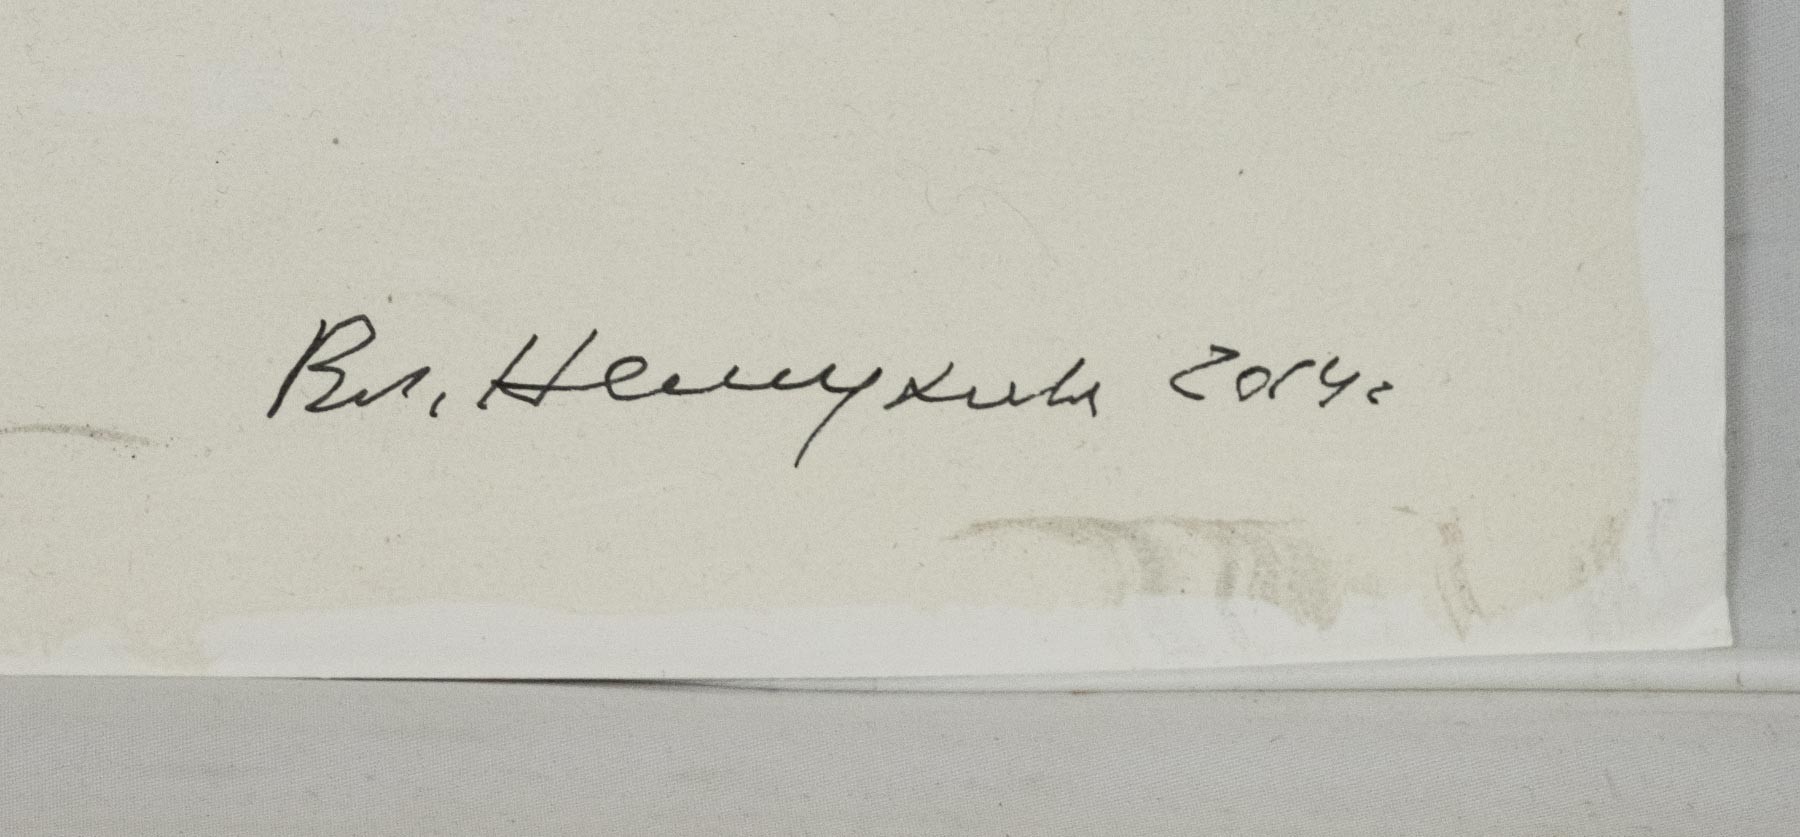 Вл. Немухин 2014г